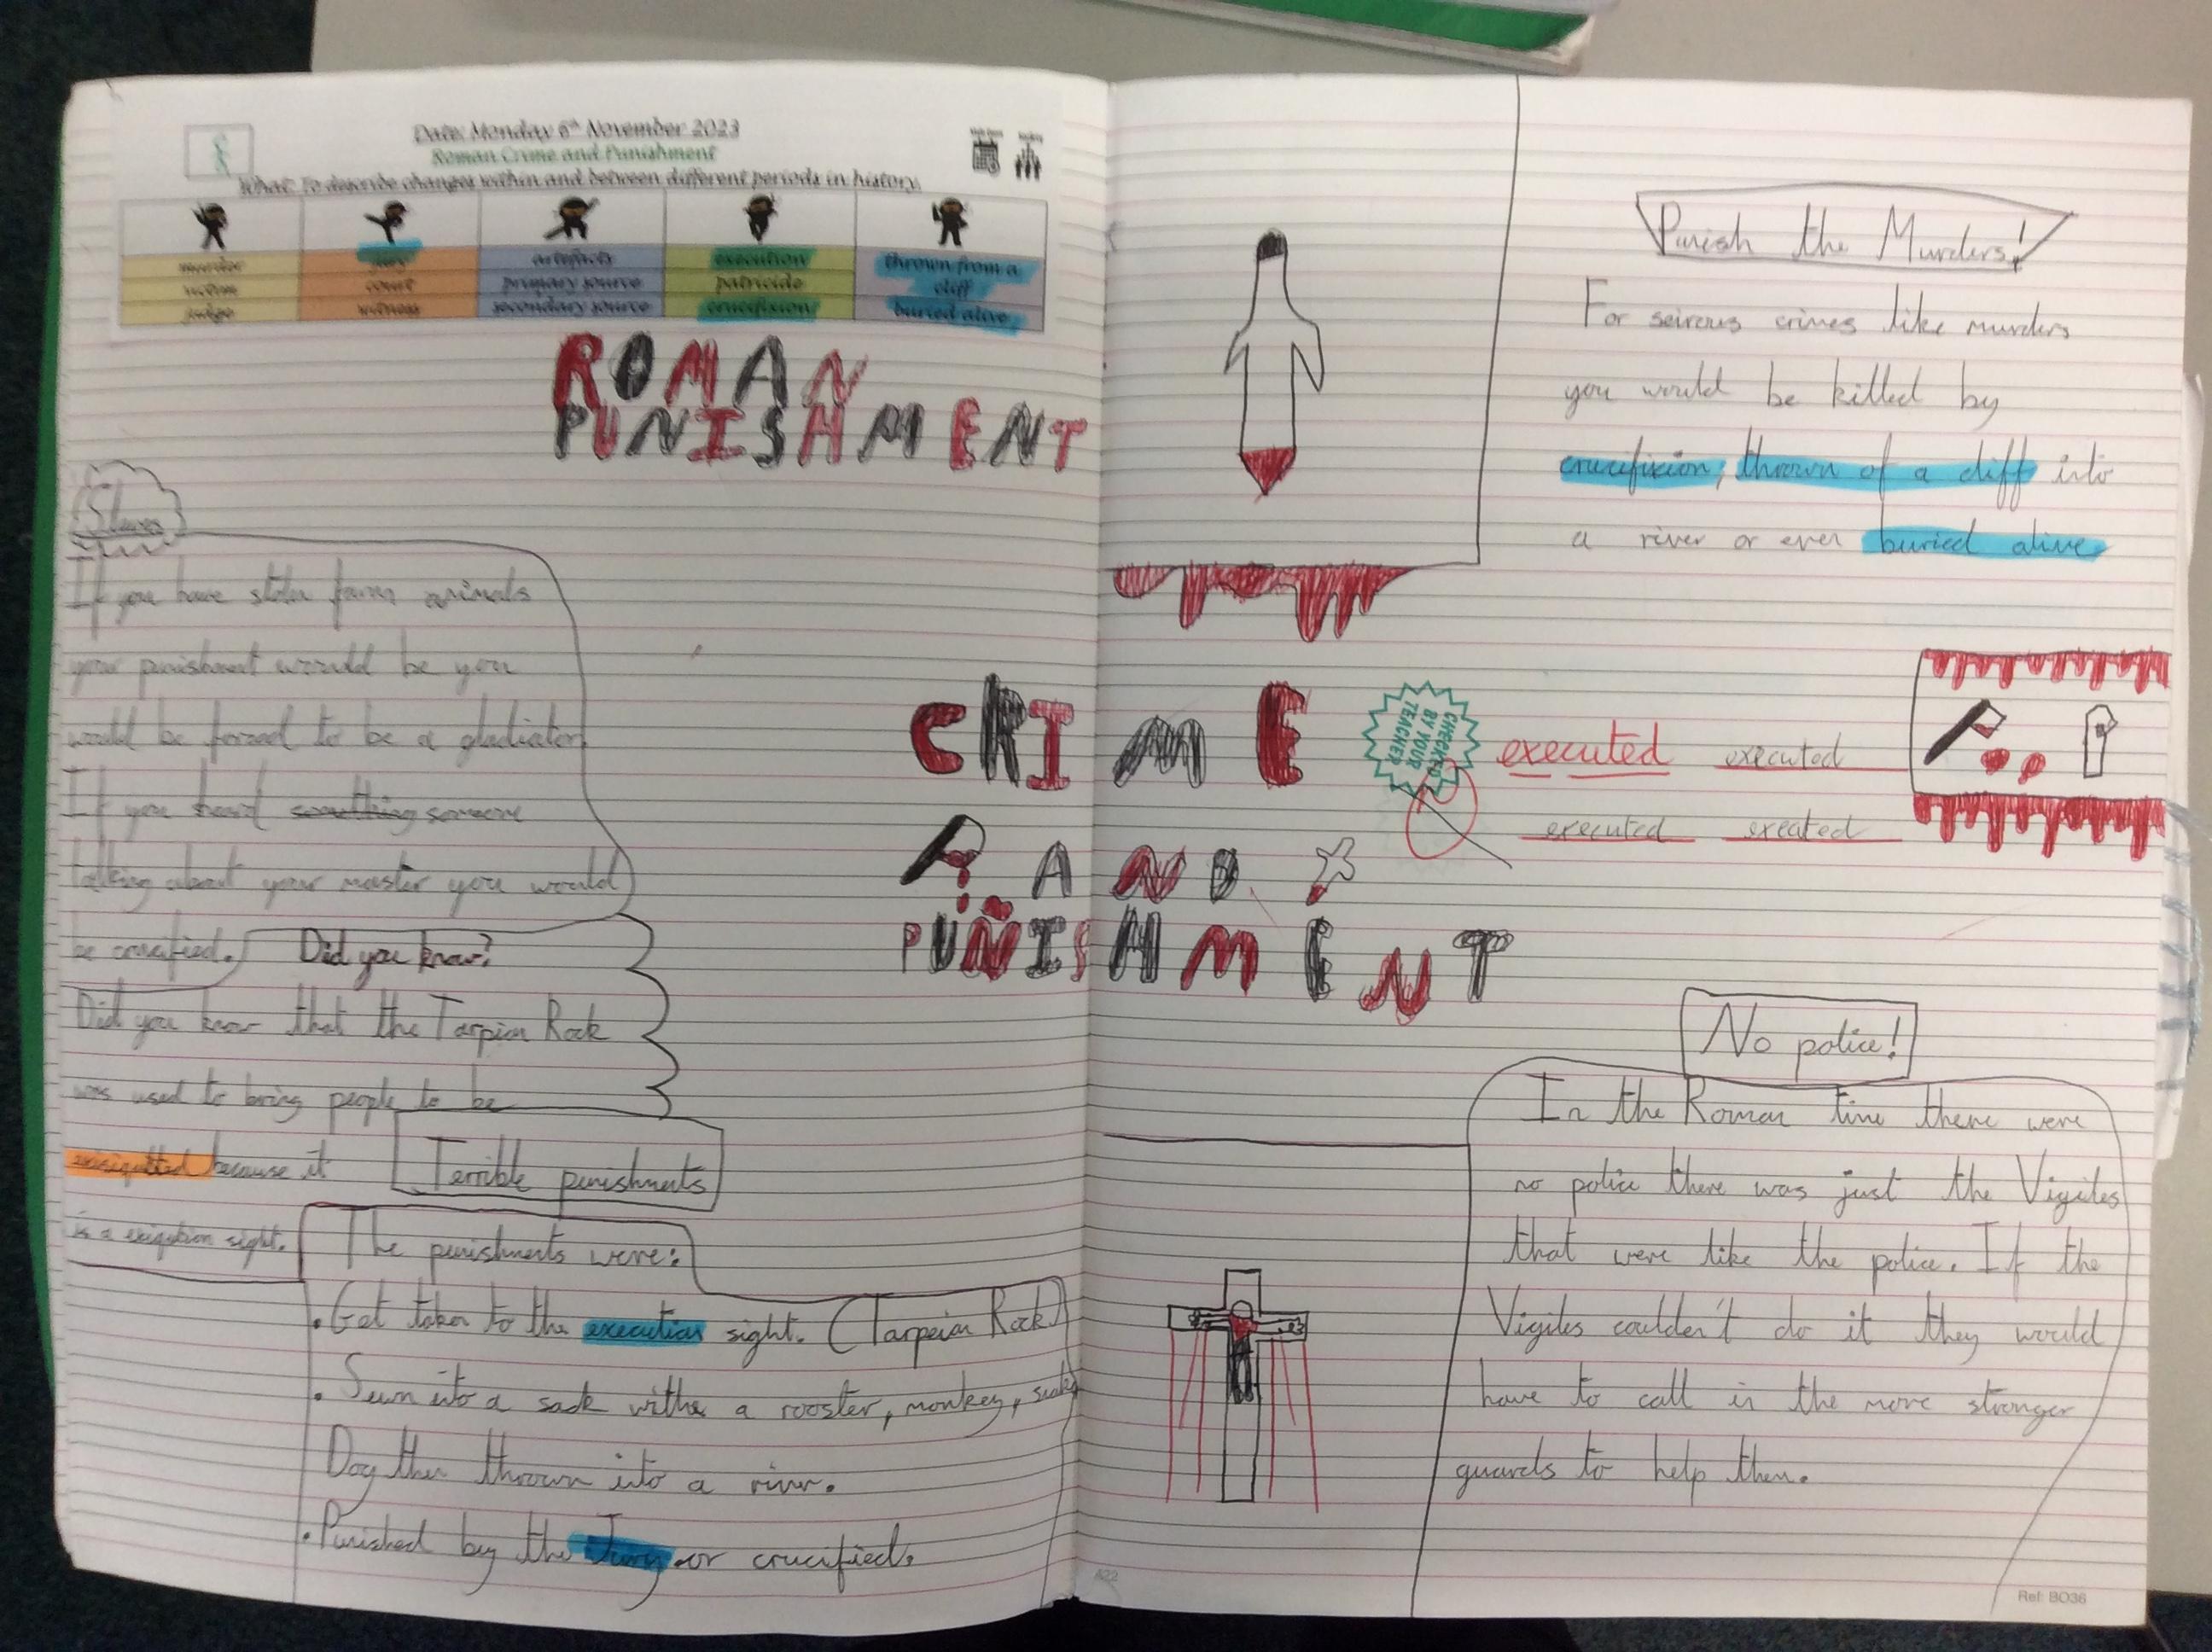 Date: Monday 6th November 2023
Roman Crime and Punishment
What: To describe changes within and between different periods in history.
murder
victim
judge
jury
court
witness
artefacts
primary source
secondary source
execution
patricide
crucifixion
thrown from a
cliff
buried alive
ROMAN
PUNISHMENT
Slaves
If you have stolen farm animals
your punishment would be you
would be forzed to be a gladiator.
If you heard something someone
talking about your master you would
be crucified.
Did you know?
Did you know that the Tarpian Rock
was used to bring people to be
exsiqutted because it
is a exiqution sight.
Terrible punishments
The punishments were:
. Get taken to the execution sight. (Tarpeian Rock)
. Sewn into a sack withe a rooster, monkey, snake
Dog then thrown into a river.
. Punished by the Jury or crucified.
CRIME
AND
PUNISHMENT
CHECKED
BY YOUR
TEACHER
executed executed
executed exeated
Punish the Murders!
For seirous crimes like murders
you would be killed by
crucifixion, thrown of a cliff into
a river or even buried alive
No police!
In the Roman time there were
no police there was just the Vigiles
that were like the police. If the
Vigiles couldn't do it they would
have to call in the more stronger
guards to help them.
A22
Ref: BO36